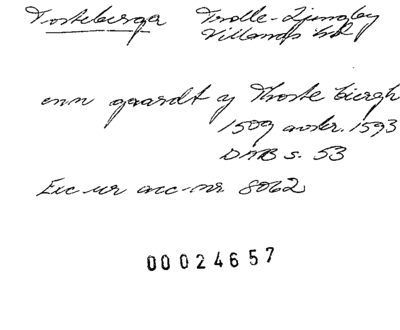 Tosteberga Trolle-Ljungby
Villands hd
enn gaardt y Thoste biergh
1509 avskr. 1593
DMB s. 53
Exc ur acc-nr 8062
00024657